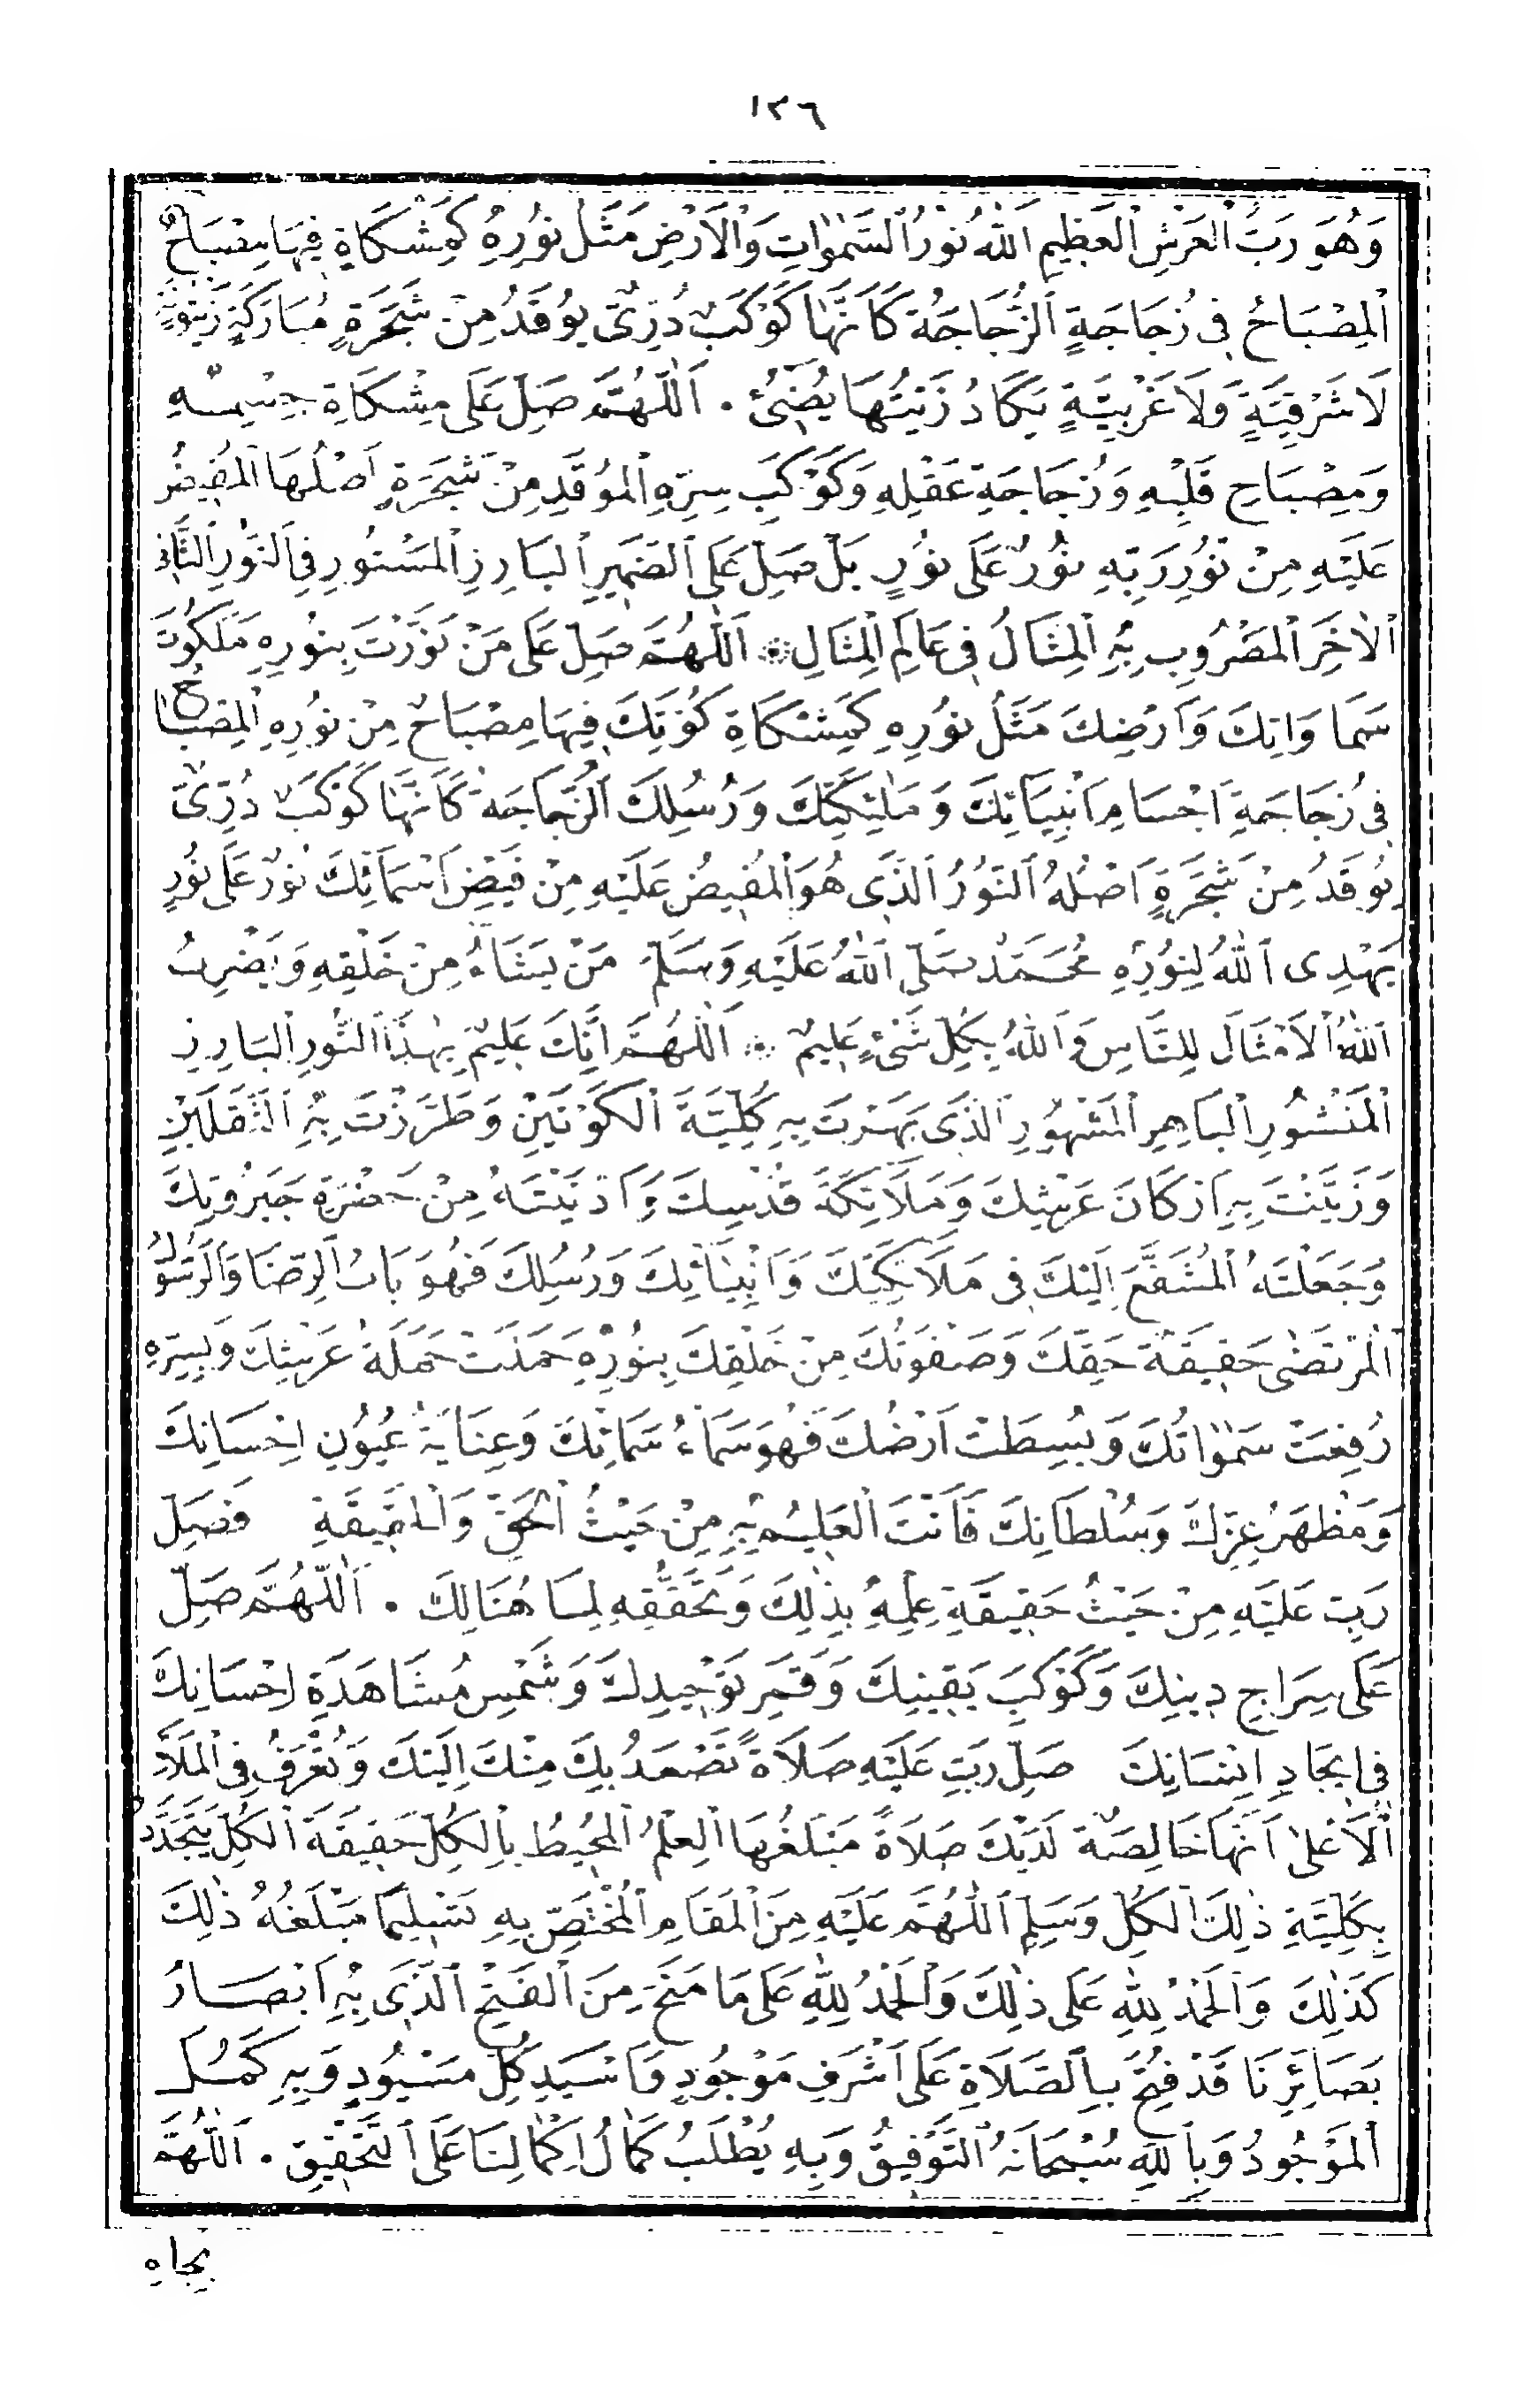 ١٣٦
وَهُوَ رَبُّ الْعَرْشِ الْعَظِيمِ اَللّٰهُ نُورُ السَّمٰوَاتِ وَالْاَرْضِ مَثَلُ نُورِهِ كَمِشْكَاةٍ فِيهَا مِصْبَاحٌ
اَلْمِصْبَاحُ فِى زُجَاجَةٍ اَلزُّجَاجَةُ كَاَنَّهَا كَوْكَبٌ دُرِّىٌّ يُوقَدُ مِنْ شَجَرَةٍ مُبَارَكَةٍ زَيْتُونَةٍ
لَا شَرْقِيَّةٍ وَلَا غَرْبِيَّةٍ يَكَادُ زَيْتُهَا يُضِىٓءُ . اَللّٰهُمَّ صَلِّ عَلَى مِشْكَاةِ جِسْمِهِ
وَمِصْبَاحِ قَلْبِهِ وَزُجَاجَةِ عَقْلِهِ وَكَوْكَبِ سِرِّهِ الْمُوقَدِ مِنْ شَجَرَةٍ اَصْلُهَا الْمُفِيضُ
عَلَيْهِ مِنْ نُورِ رَبِّهِ نُورٌ عَلَى نُورٍ بَلْ صَلِّ عَلَى الضَّمِيرِ الْبَارِزِ الْمَسْتُورِ فِى النُّورِ الثَّانِى
الْاٰخَرِ الْمَضْرُوبِ بِهِ الْمِثَالُ فِى عَالَمِ الْمِثَالِ ۞ اَللّٰهُمَّ صَلِّ عَلَى مَنْ نَوَّرْتَ بِنُورِهِ مَلَكُوتَ
سَمَاوَاتِكَ وَاَرْضِكَ مَثَلُ نُورِهِ كَمِشْكَاةِ كَوْنِكَ فِيهَا مِصْبَاحٌ مِنْ نُورِهِ الْمِصْبَاحُ
فِى زُجَاجَةِ اَجْسَامِ اَنْبِيَائِكَ وَمَلٰئِكَتِكَ وَرُسُلِكَ اَلزُّجَاجَةُ كَاَنَّهَا كَوْكَبٌ دُرِّىٌّ
يُوقَدُ مِنْ شَجَرَةٍ اَصْلُهُ النُّورُ الَّذِى هُوَ الْمُفِيضُ عَلَيْهِ مِنْ فَيْضِ اَسْمَائِكَ نُورٌ عَلَى نُورٍ
يَهْدِى اللّٰهُ لِنُورِهِ مُحَمَّدٍ صَلَّى اللّٰهُ عَلَيْهِ وَسَلَّمَ مَنْ يَشَاءُ مِنْ خَلْقِهِ وَيَضْرِبُ
اللّٰهُ الْاَمْثَالَ لِلنَّاسِ وَاللّٰهُ بِكُلِّ شَىْءٍ عَلِيمٌ ۞ اَللّٰهُمَّ اِنَّكَ عَلِيمٌ بِهٰذَا النُّورِ الْبَارِزِ
الْمَنْشُورِ الْبَاهِرِ الْمَشْهُورِ الَّذِى بَهَرْتَ بِهِ كُلِّيَّةَ الْكَوْنَيْنِ وَطَرَّزْتَ بِهِ الثَّقَلَيْنِ
وَزَيَّنْتَ بِهِ اَرْكَانَ عَرْشِكَ وَمَلَائِكَةَ قُدْسِكَ وَاَدْنَيْتَهُ مِنْ حَضْرَةِ جَبَرُوتِكَ
وَجَعَلْتَهُ الْمُشَفَّعَ اِلَيْكَ فِى مَلَائِكَتِكَ وَاَنْبِيَائِكَ وَرُسُلِكَ فَهُوَ بَابُ الرِّضَا وَالرَّسُولُ
الْمُرْتَضٰى حَقِيقَةُ حَقِّكَ وَصَفْوَتُكَ مِنْ خَلْقِكَ بِنُورِهِ حَمَلَتْ حَمَلَةُ عَرْشِكَ وَبِسِرِّهِ
رُفِعَتْ سَمٰوَاتُكَ وَبُسِطَتْ اَرْضُكَ فَهُوَ سَمَاءُ سَمَائِكَ وَعِنَايَةُ عُيُونِ اِحْسَانِكَ
وَمَظْهَرُ عِزِّكَ وَسُلْطَانِكَ فَاَنْتَ الْعَلِيمُ بِهِ مِنْ حَيْثُ الْحَقِّ وَالْحَقِيقَةِ فَصَلِّ
رَبِّ عَلَيْهِ مِنْ حَيْثُ حَقِيقَةِ عِلْمِهِ بِذٰلِكَ وَتَحَقُّقِهِ لِمَا هُنَالِكَ . اَللّٰهُمَّ صَلِّ
عَلَى سِرَاجِ دِينِكَ وَكَوْكَبِ يَقِينِكَ وَقَمَرِ تَوْحِيدِكَ وَشَمْسِ مُشَاهَدَةِ اِحْسَانِكَ
فِى اِيجَادِ اِنْسَانِكَ صَلِّ رَبِّ عَلَيْهِ صَلَاةً تَصْعَدُ بِكَ مِنْكَ اِلَيْكَ وَتُعْرَفُ فِى الْمَلَاِ
الْاَعْلٰى اَنَّهَا خَالِصَةٌ لَدَيْكَ صَلَاةً مَبْلَغُهَا الْعِلْمُ الْمُحِيطُ بِالْكُلِّ حَقِيقَةَ الْكُلِّ يَتَجَدَّدُ
بِكُلِّيَّةِ ذٰلِكَ الْكُلِّ وَسَلِّمِ اللّٰهُمَّ عَلَيْهِ مِنَ الْمَقَامِ الْمُخْتَصِّ بِهِ تَسْلِيمًا مَبْلَغُهُ ذٰلِكَ
كَذٰلِكَ وَالْحَمْدُ لِلّٰهِ عَلَى ذٰلِكَ وَالْحَمْدُ لِلّٰهِ عَلَى مَا مَنَحَ مِنَ الْفَتْحِ الَّذِى بِهِ اَبْصَارُ
بَصَائِرِنَا قَدْ فُتِحَ بِالصَّلَاةِ عَلَى اَشْرَفِ مَوْجُودٍ وَاَسْيَدِ كُلِّ مَسْيُودٍ وَبِهِ كَمُلَ
الْمَوْجُودُ وَبِاللّٰهِ سُبْحَانَهُ التَّوْفِيقُ وَبِهِ يُطْلَبُ كَمَالُ اِكْمَالِنَا عَلَى التَّحْقِيقِ . اَللّٰهُمَّ
بجاه